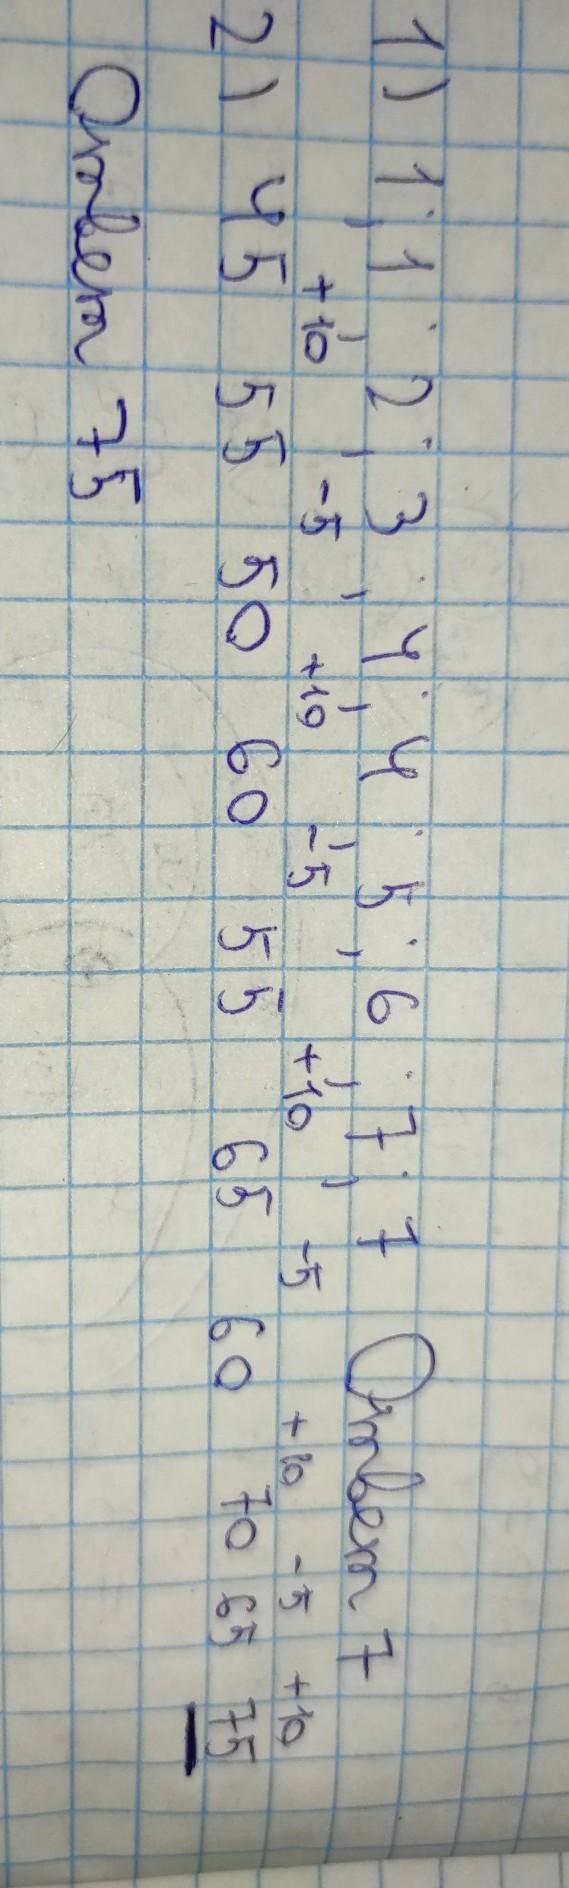 1) 1; 1; 2; 3; 4; 4; 5; 6; 7; 7 Ответ 7
+10 -5 +10 -5 +10 -5 +10 -5 +10
2) 45 55 50 60 55 65 60 70 65 75
Ответ 75